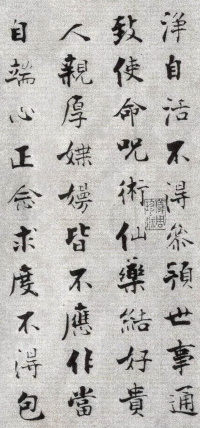 淨自活不得參預世事通
致使命呪術仙藥結好貴
人親厚媟嫚皆不應作當
自端心正念求度不得包